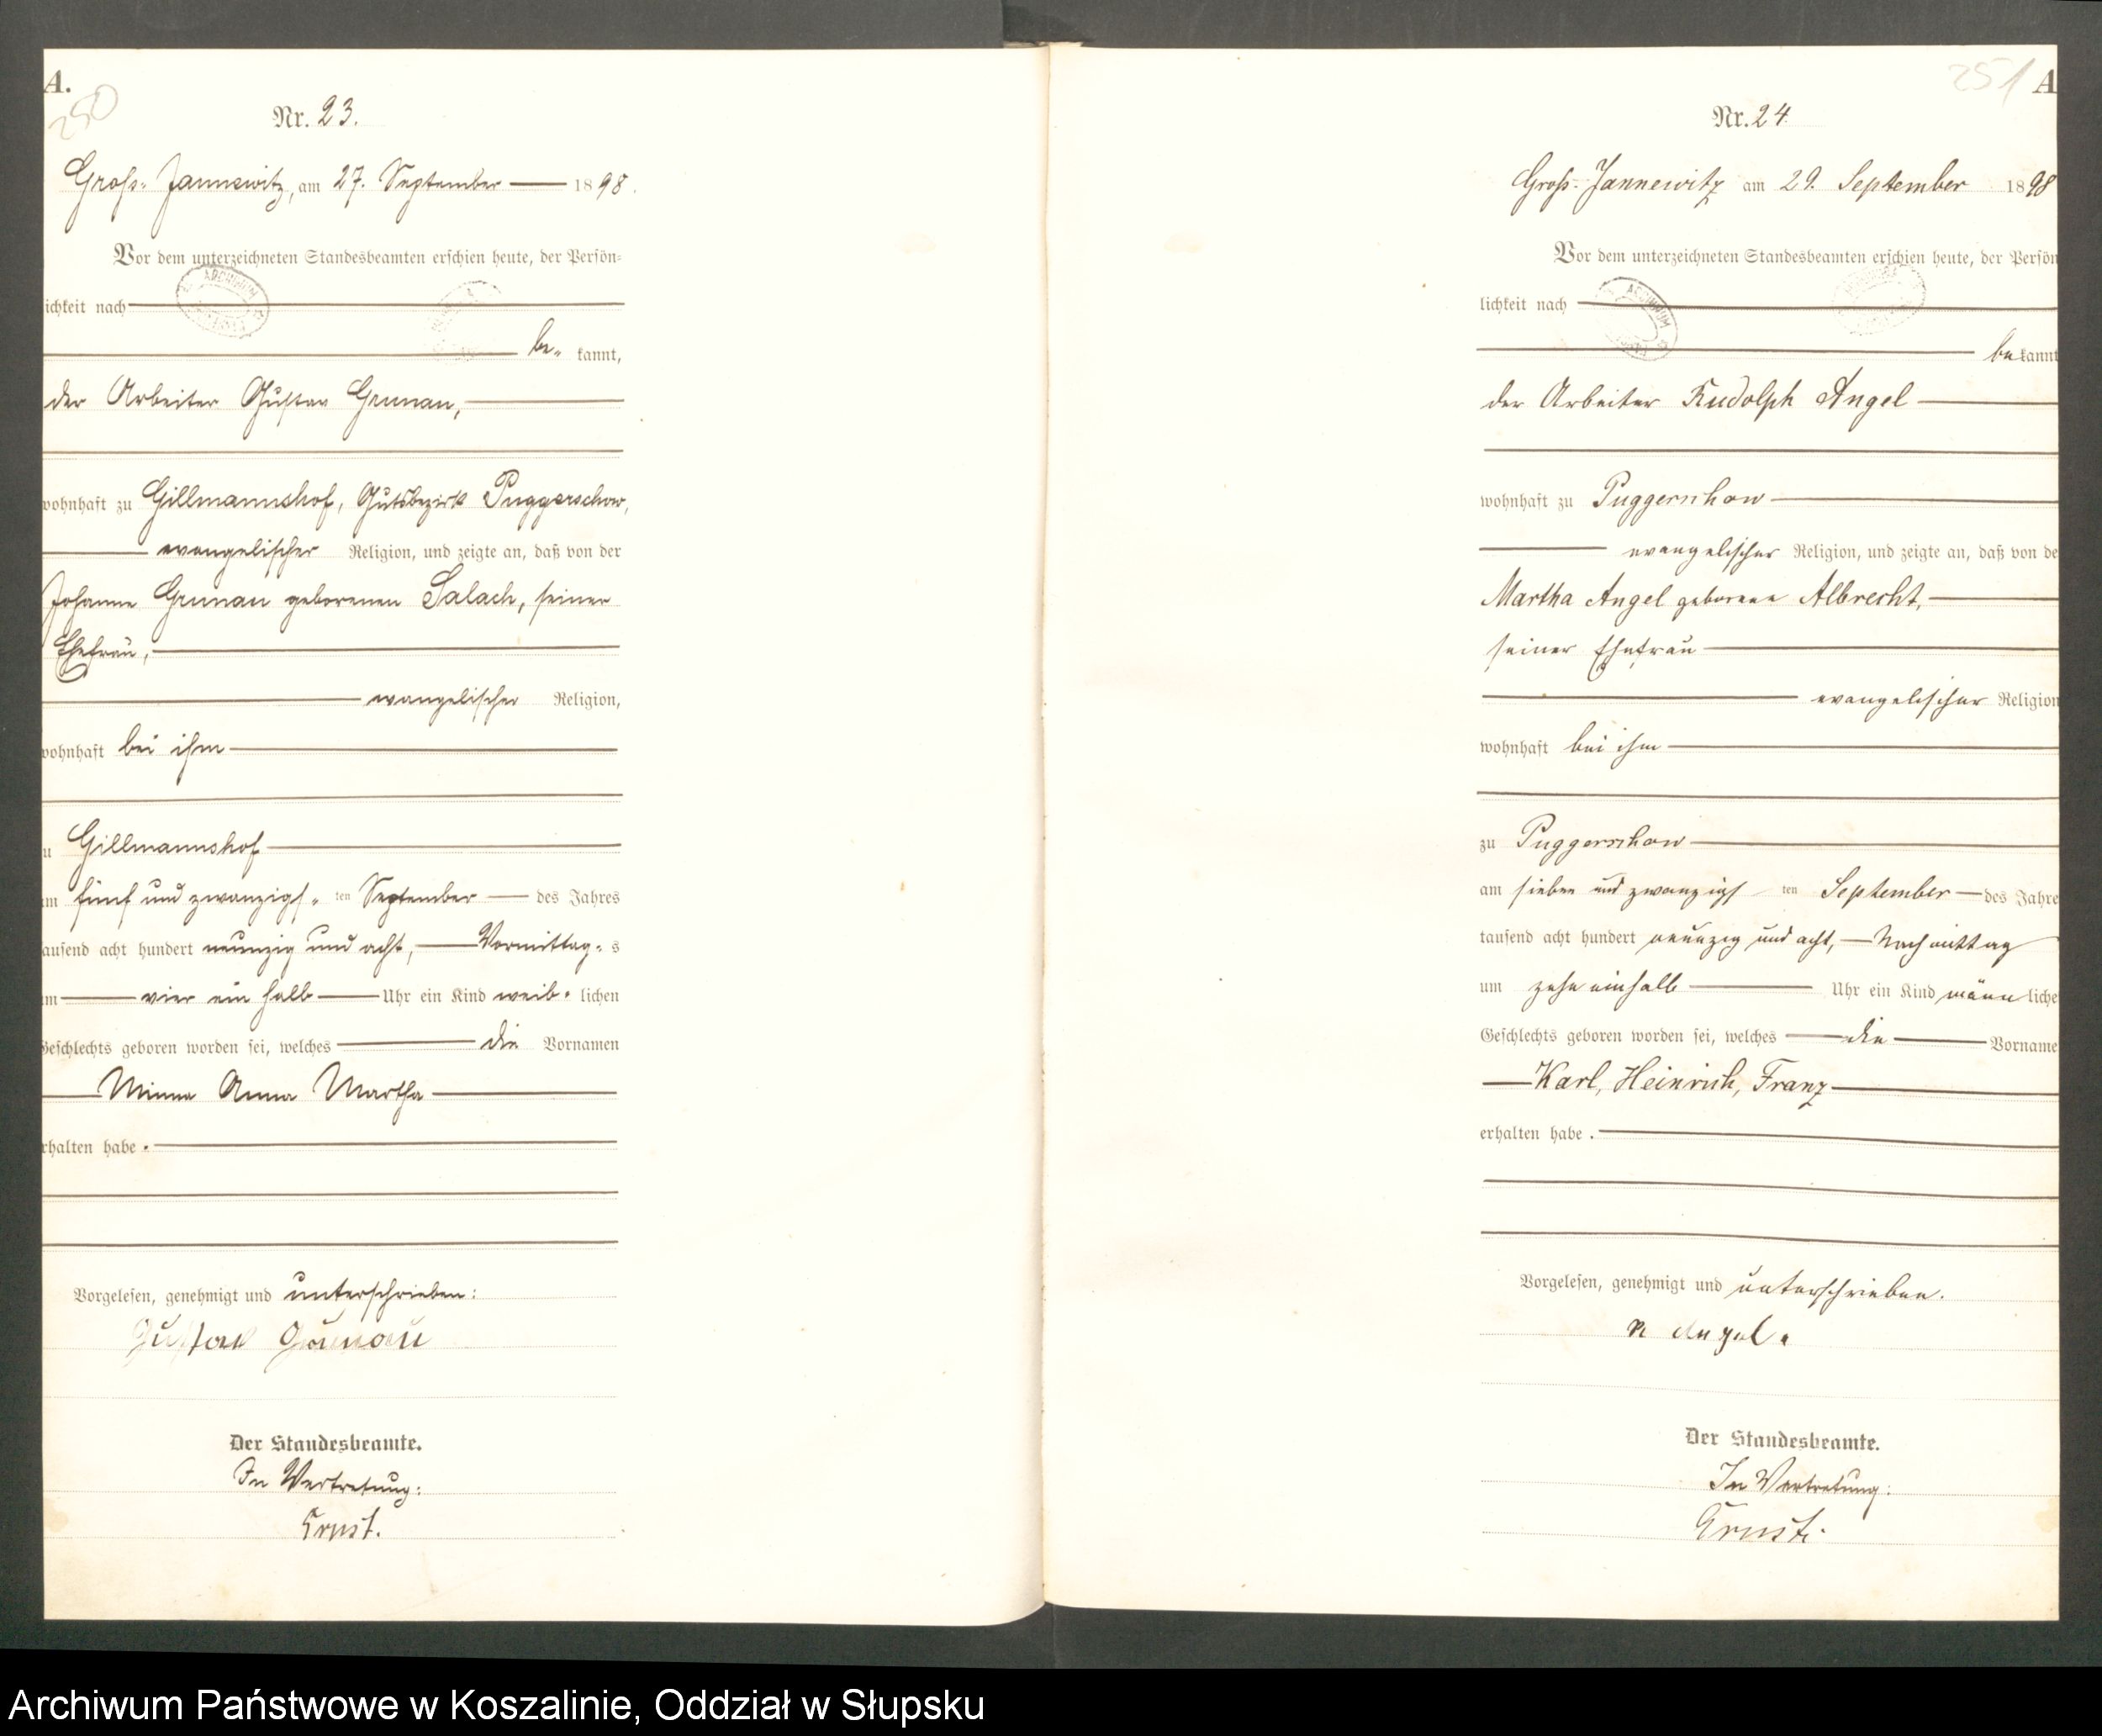 A.
250
Nr. 23.
Groß-Jannewitz, am 27. September 1898.
Vor dem unterzeichneten Standesbeamten erschien heute, der Persön-
ichkeit nach
be- kannt,
der Arbeiter Gustav Grunau,
wohnhaft zu Gillmannshof, Gutsbezirk Puggerschow,
evangelischer Religion, und zeigte an, daß von der
Johanne Grunau geborenen Salach, seiner
Ehefrau,
evangelischer Religion,
wohnhaft bei ihm
zu Gillmannshof
am fünf und zwanzigs-ten September des Jahres
tausend acht hundert neunzig und acht, Vormittag-s
um vier ein halb Uhr ein Kind weib-lichen
Geschlechts geboren worden sei, welches die Vornamen
Minna Anna Martha
erhalten habe.
Vorgelesen, genehmigt und unterschrieben:
Gustav Grunau
Der Standesbeamte.
In Vertretung:
Ernst.
251 A
Nr. 24
Groß-Jannewitz am 29. September 1898
Vor dem unterzeichneten Standesbeamten erschien heute, der Persön
lichkeit nach
be kannt
der Arbeiter Rudolph Angel
wohnhaft zu Puggerschow
evangelischer Religion, und zeigte an, daß von de
Martha Angel geborene Albrecht,
seiner Ehefrau
evangelischer Religion
wohnhaft bei ihm
zu Puggerschow
am sieben und zwanzigs ten September des Jahre
tausend acht hundert neunzig und acht, Nachmittag
um zehn einhalb Uhr ein Kind männ liche
Geschlechts geboren worden sei, welches die Vorname
Karl, Heinrich, Franz
erhalten habe.
Vorgelesen, genehmigt und unterschrieben.
R Angel.
Der Standesbeamte.
In Vertretung:
Ernst.
Archiwum Państwowe w Koszalinie, Oddział w Słupsku